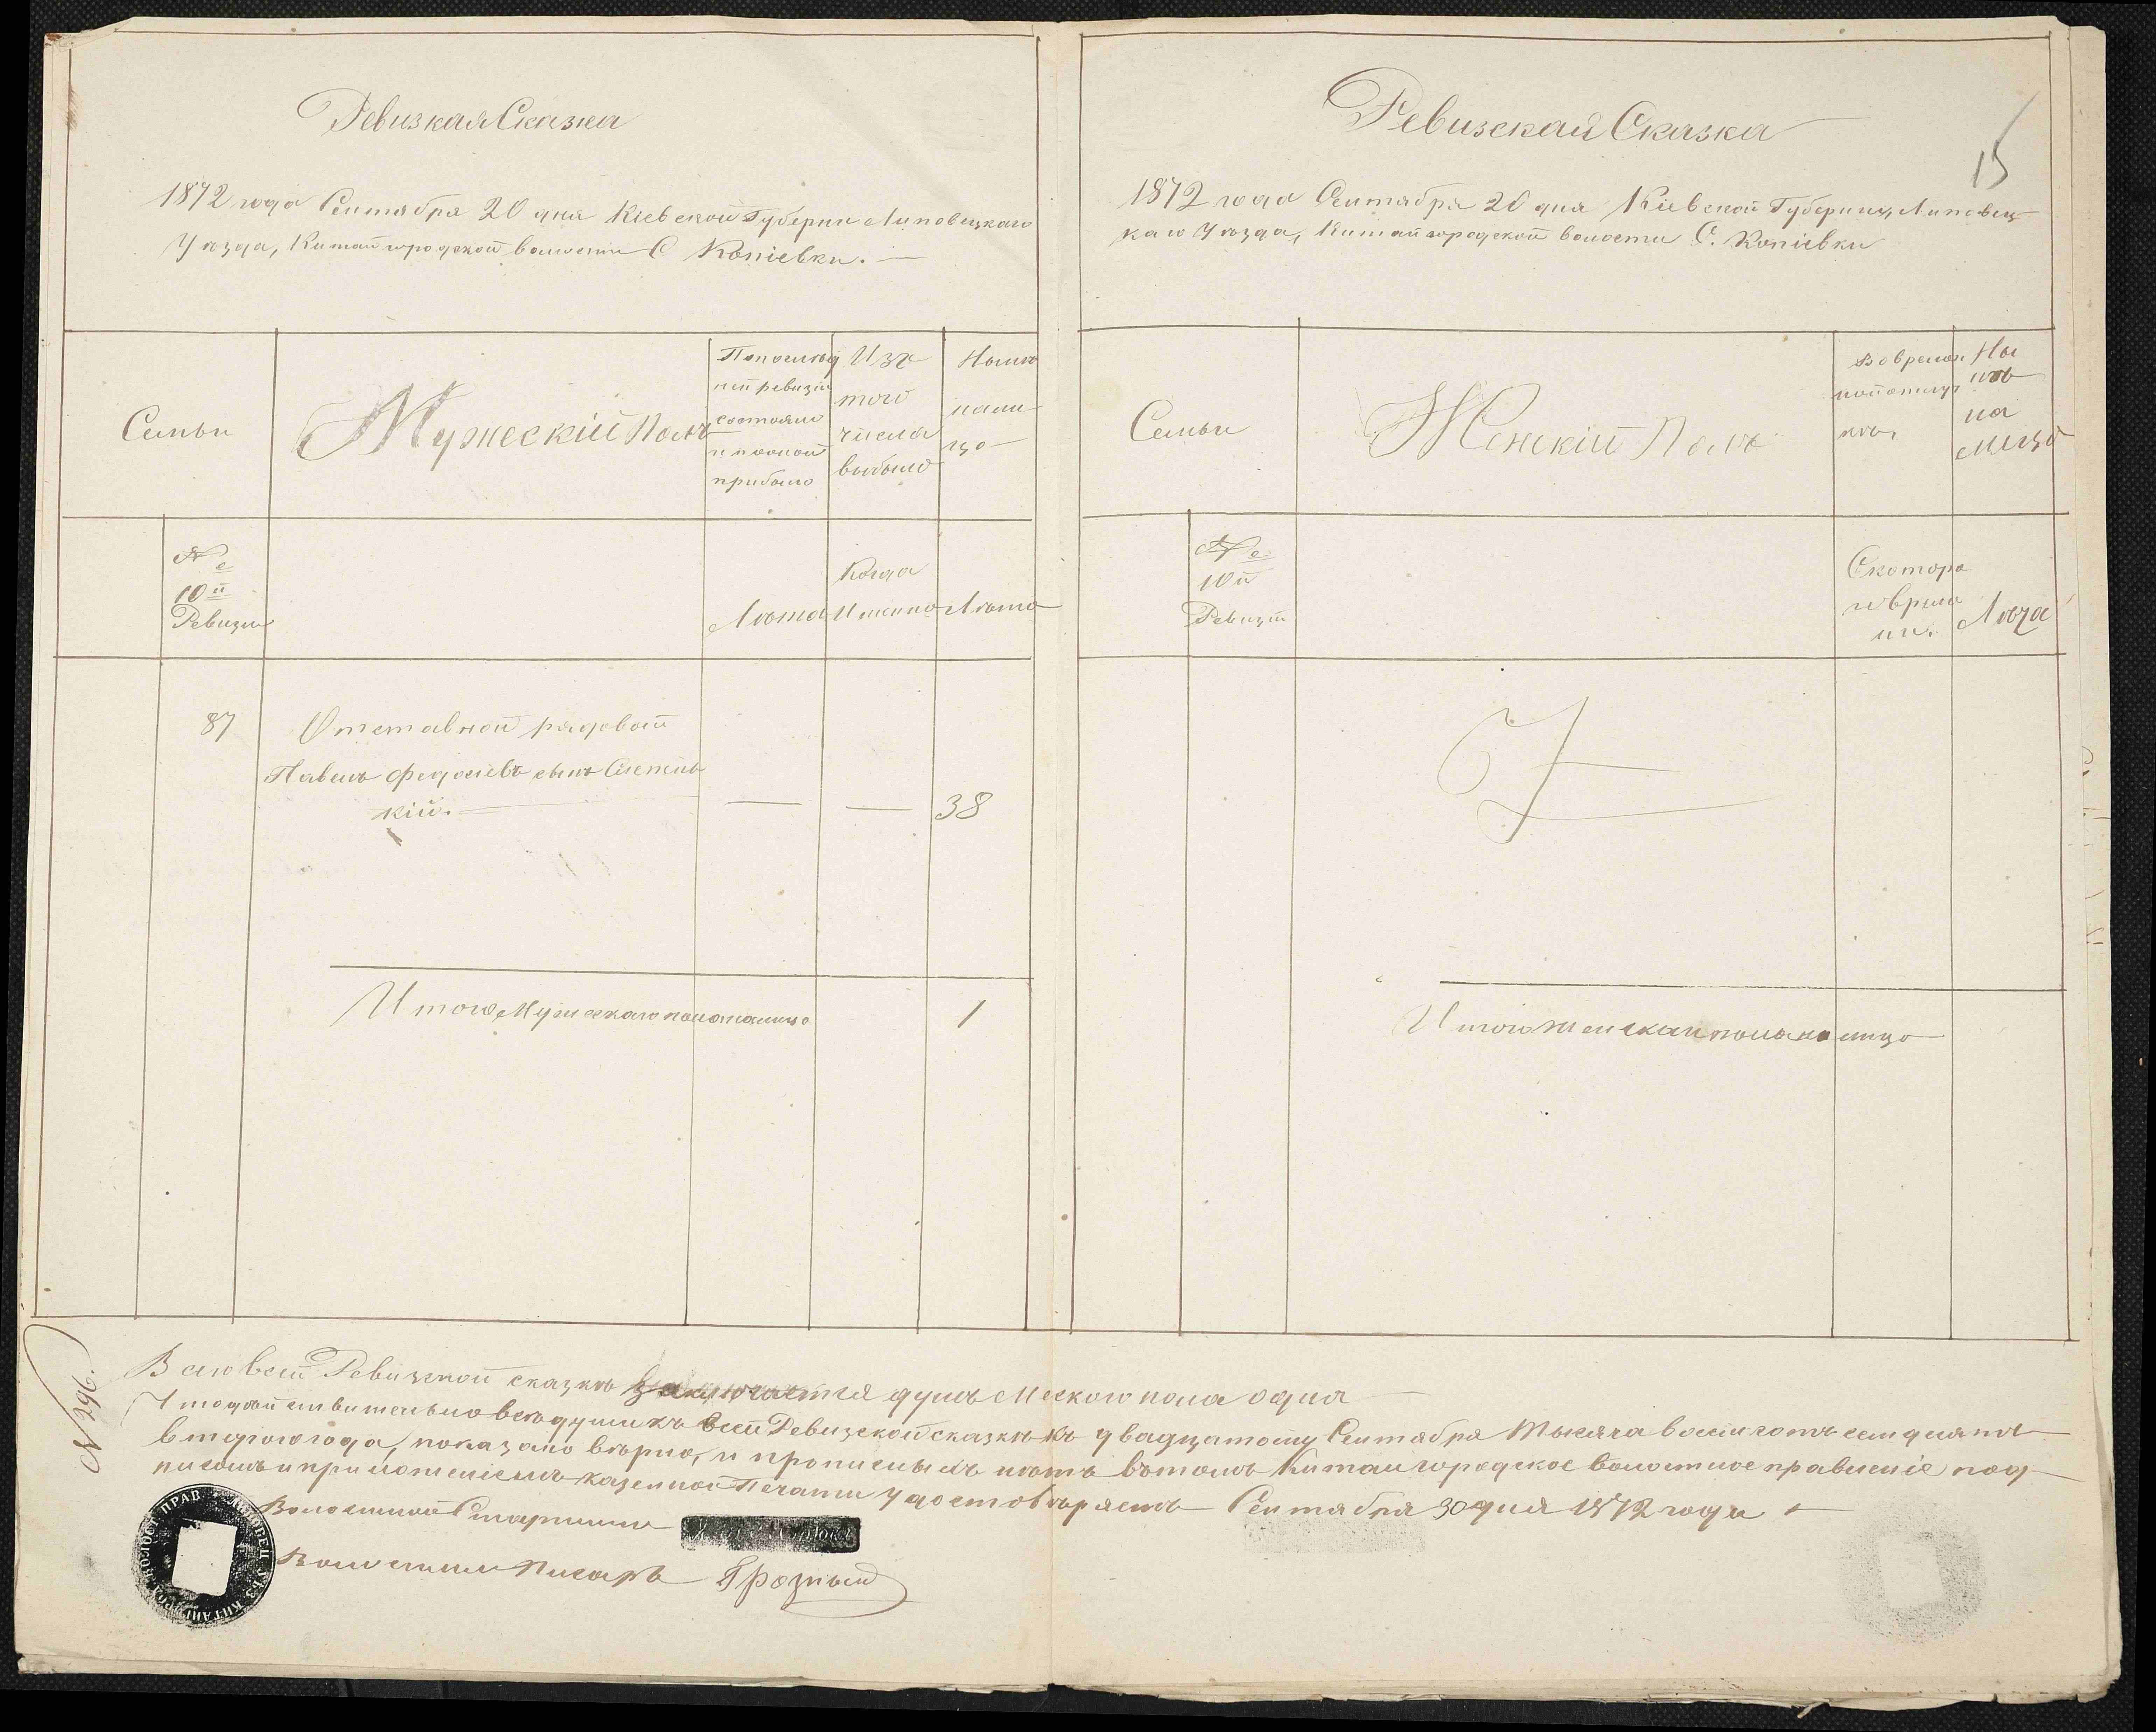 Ревизкая Сказка
1872 года Сентября 20 дня Кіевской Губерни Липовецкаго
Уѣзда, Китайгородской волости С Копіевки. —
Семьи
Мужескій Полъ
По послѣд
ней ревизіи
состояло
и послѣ
прибыло
Изъ
того
числа
выбыло
Нынѣ
на ли-
цо
№
10й
Ревизіи
Лѣта
Когда
Именно
Лѣта
87
Отставной рядовой
Павелъ Федосіевъ сынъ
кій. —
— — 38
Итого Мужескаго пола на лицо 1
Ревизская Сказка
15
1872 года Сентября 20 дня Кіевской Губерніи, Липовец-
каго Уѣзда, Китайгородской волости С. Копіевки
Семьи
Женскій Полъ
Во времен
ной отлуч
кѣ
Ны
нѣ
на
лицо
№
10й
Ревизіи
С котора
го време
ни.
Лѣта
Итого женскаго пола на лицо
№ 296.
В сей Ревизской сказкѣ заключается душъ Мескаго пола одна —
Что дѣйствительно всѣ души къ сей Ревизской сказкѣ къ двадцатому Сентября Тысяча восемсотъ семдесятъ
втораго года, показано вѣрно, и прописныхъ нѣтъ вътомъ Китайгородское волостное правленіе под-
писомъ и приложеніемъ казенной Печати удостовѣряетъ — Сентября 30 дня 1872 года
Волостной Старшина
Волостный Писарь Грозный
ЛИПОВЕЦ. УѢЗ. КИТАЙГОРОД. ВОЛОСТ. ПРАВ.